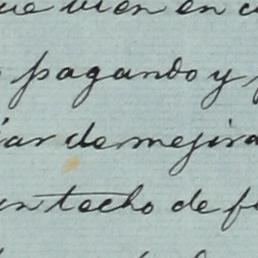 ue bien en c
pagando y
iar de mejira
un techo de f